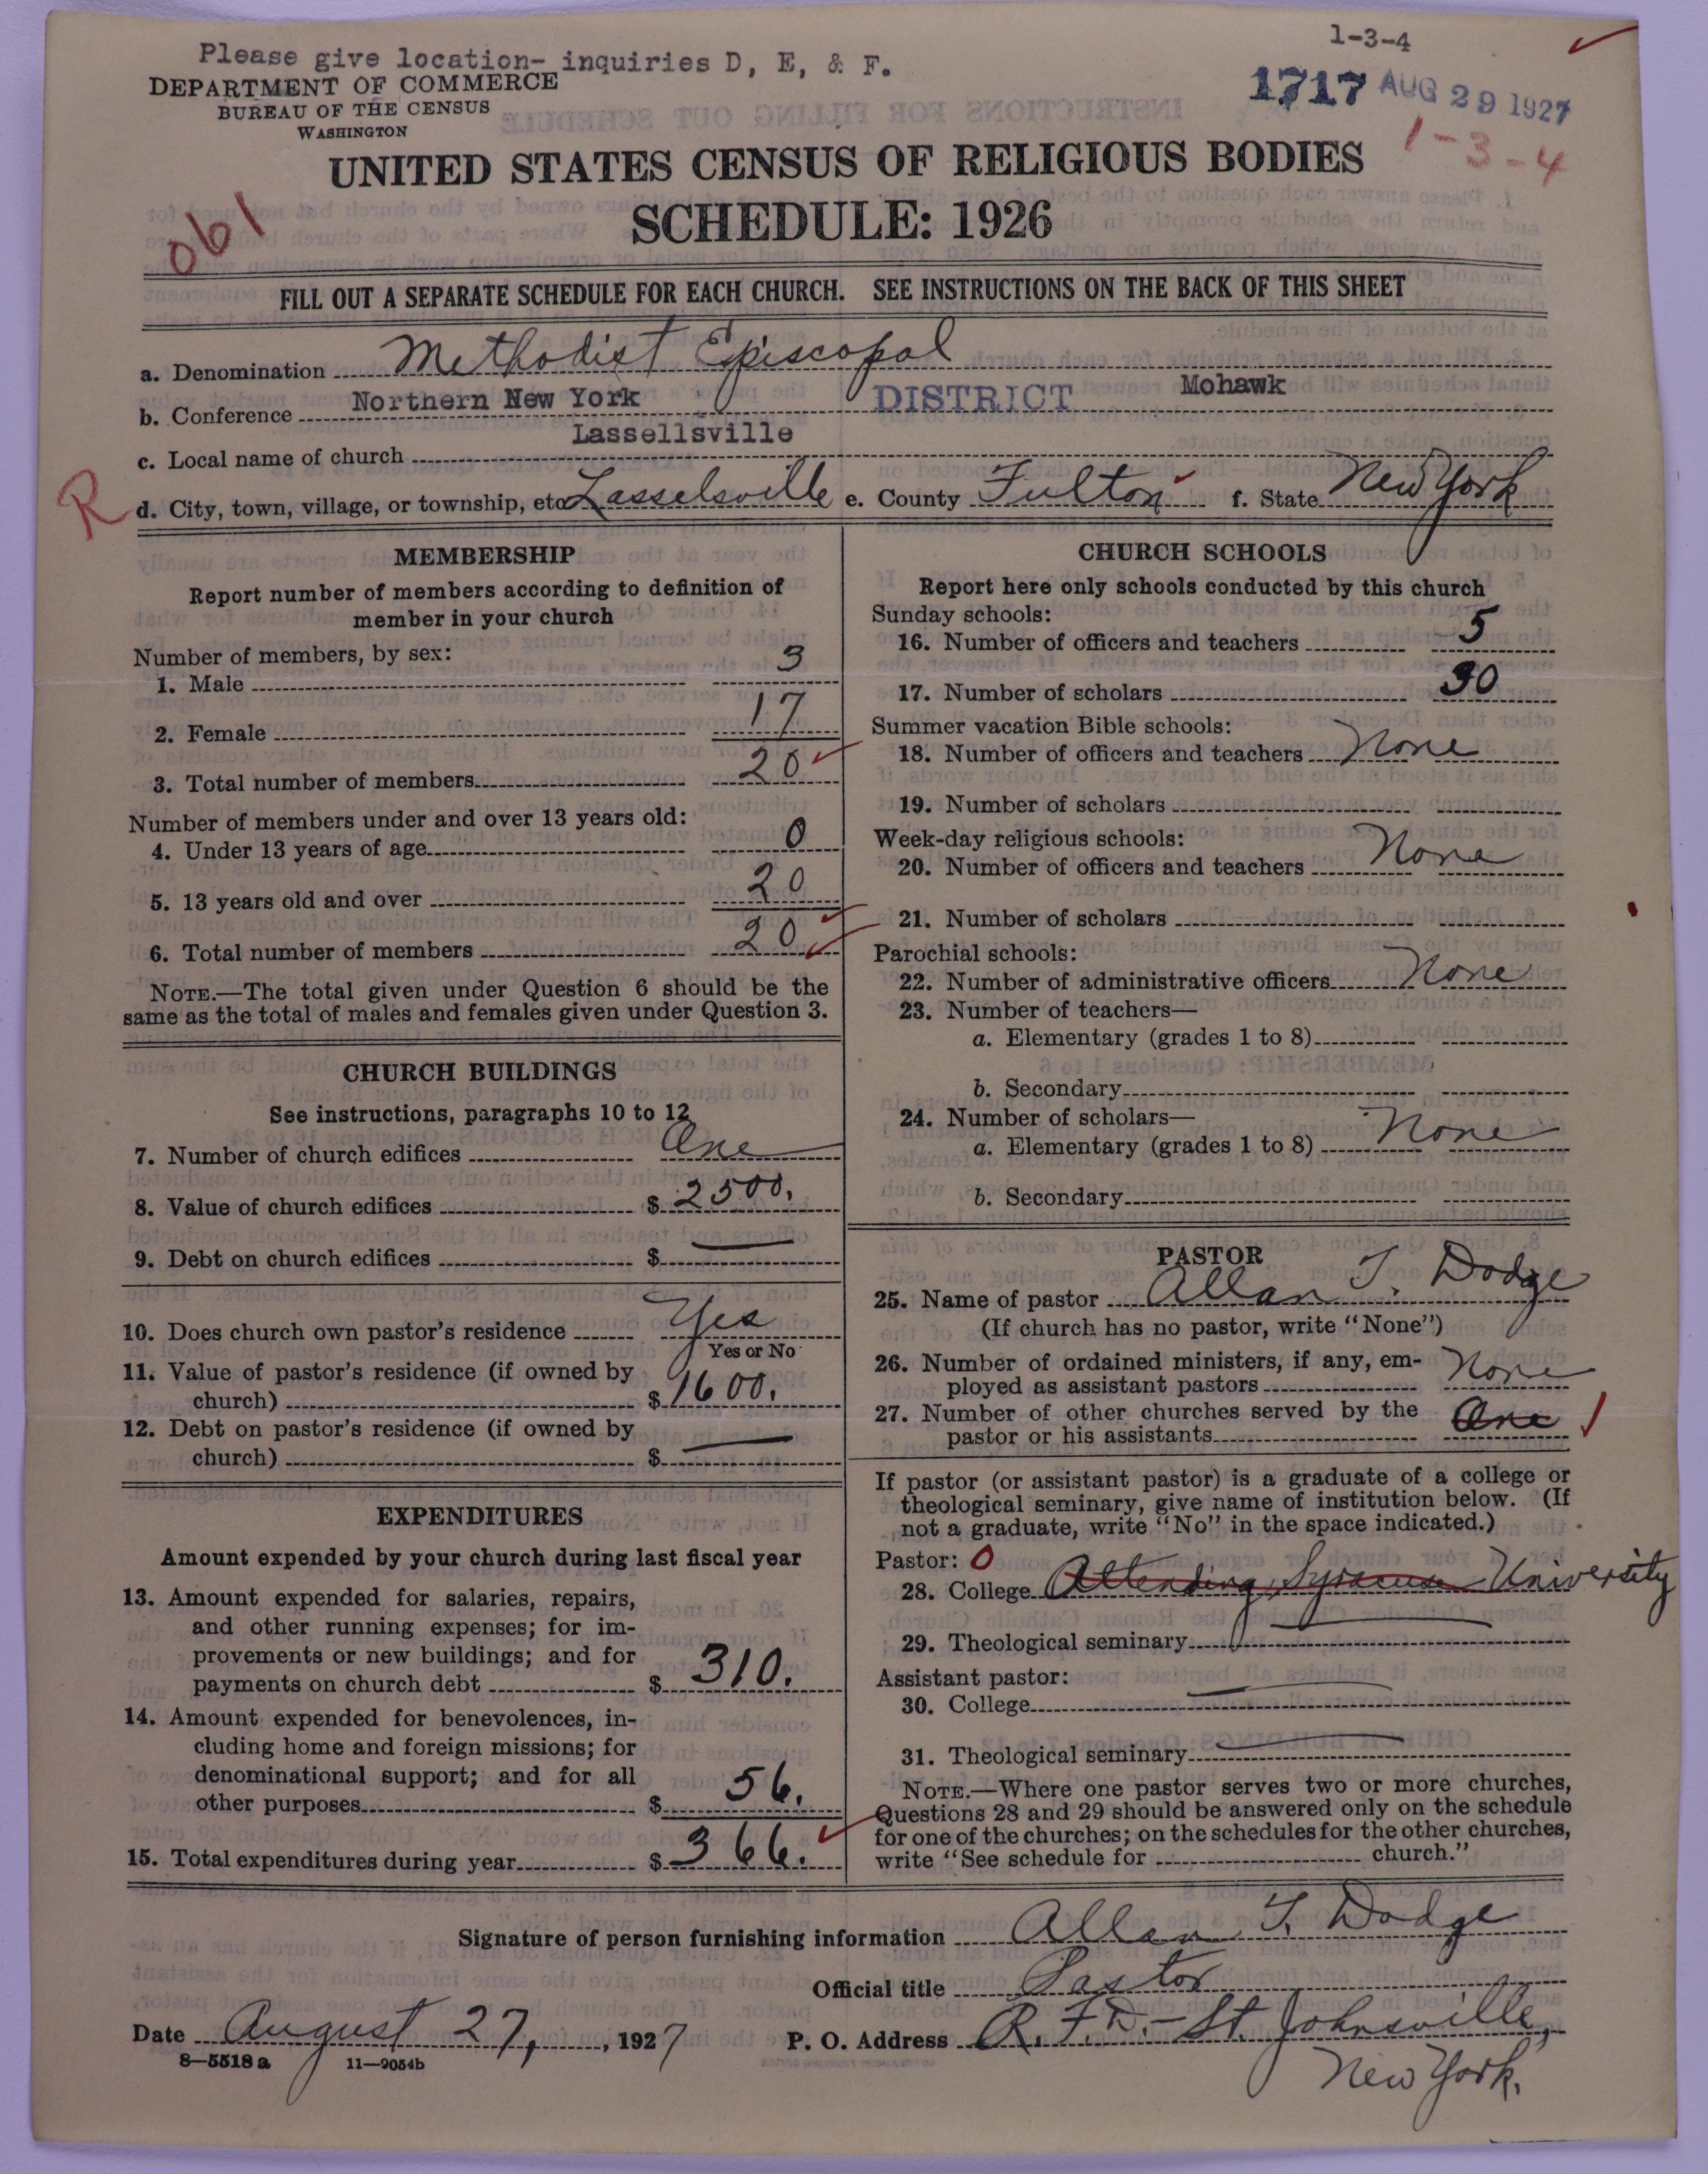 1-3-4
Please give location- inquiries D, E, & F.
1717 AUG 29 1927
DEPARTMENT OF COMMERCE
BUREAU OF THE CENSUS
WASHINGTON
1-3-4
UNITED STATES CENSUS OF RELIGIOUS BODIES
SCHEDULE: 1926
061
FILL OUT A SEPARATE SCHEDULE FOR EACH CHURCH. SEE INSTRUCTIONS ON THE BACK OF THIS SHEET
a. Denomination Methodist Episcopal
b. Conference Northern New York DISTRICT Mohawk
c. Local name of church Lassellsville
R d. City, town, village, or township, etc Lasselsville e. County Fulton f. State New York
MEMBERSHIP
Report number of members according to definition of
member in your church
Number of members, by sex:
1. Male 3
2. Female 17
3. Total number of members 20
Number of members under and over 13 years old:
4. Under 13 years of age 0
5. 13 years old and over 20
6. Total number of members 20
NOTE.—The total given under Question 6 should be the
same as the total of males and females given under Question 3.
CHURCH BUILDINGS
See instructions, paragraphs 10 to 12
7. Number of church edifices One
8. Value of church edifices $ 2500.
9. Debt on church edifices $
10. Does church own pastor's residence Yes
Yes or No
11. Value of pastor's residence (if owned by
church) $ 1600.
12. Debt on pastor's residence (if owned by
church) $
EXPENDITURES
Amount expended by your church during last fiscal year
13. Amount expended for salaries, repairs,
and other running expenses; for im-
provements or new buildings; and for
payments on church debt $ 310.
14. Amount expended for benevolences, in-
cluding home and foreign missions; for
denominational support; and for all
other purposes $ 56.
15. Total expenditures during year $ 366.
CHURCH SCHOOLS
Report here only schools conducted by this church
Sunday schools:
16. Number of officers and teachers 5
17. Number of scholars 30
Summer vacation Bible schools:
18. Number of officers and teachers None
19. Number of scholars
Week-day religious schools:
20. Number of officers and teachers None
21. Number of scholars
Parochial schools:
22. Number of administrative officers None
23. Number of teachers—
a. Elementary (grades 1 to 8)
b. Secondary
24. Number of scholars—
a. Elementary (grades 1 to 8) None
b. Secondary
PASTOR
25. Name of pastor Allan T. Dodge
(If church has no pastor, write "None")
26. Number of ordained ministers, if any, em-
ployed as assistant pastors None
27. Number of other churches served by the
pastor or his assistants One
If pastor (or assistant pastor) is a graduate of a college or
theological seminary, give name of institution below. (If
not a graduate, write "No" in the space indicated.)
Pastor: 0
28. College Attending Syracuse University
29. Theological seminary
Assistant pastor:
30. College
31. Theological seminary
NOTE.—Where one pastor serves two or more churches,
Questions 28 and 29 should be answered only on the schedule
for one of the churches; on the schedules for the other churches,
write "See schedule for church."
Signature of person furnishing information Allan T. Dodge
Official title Pastor
Date August 27, 1927 P. O. Address R. F. D. - St. Johnsville,
8—5518 a 11—9054b
New York.